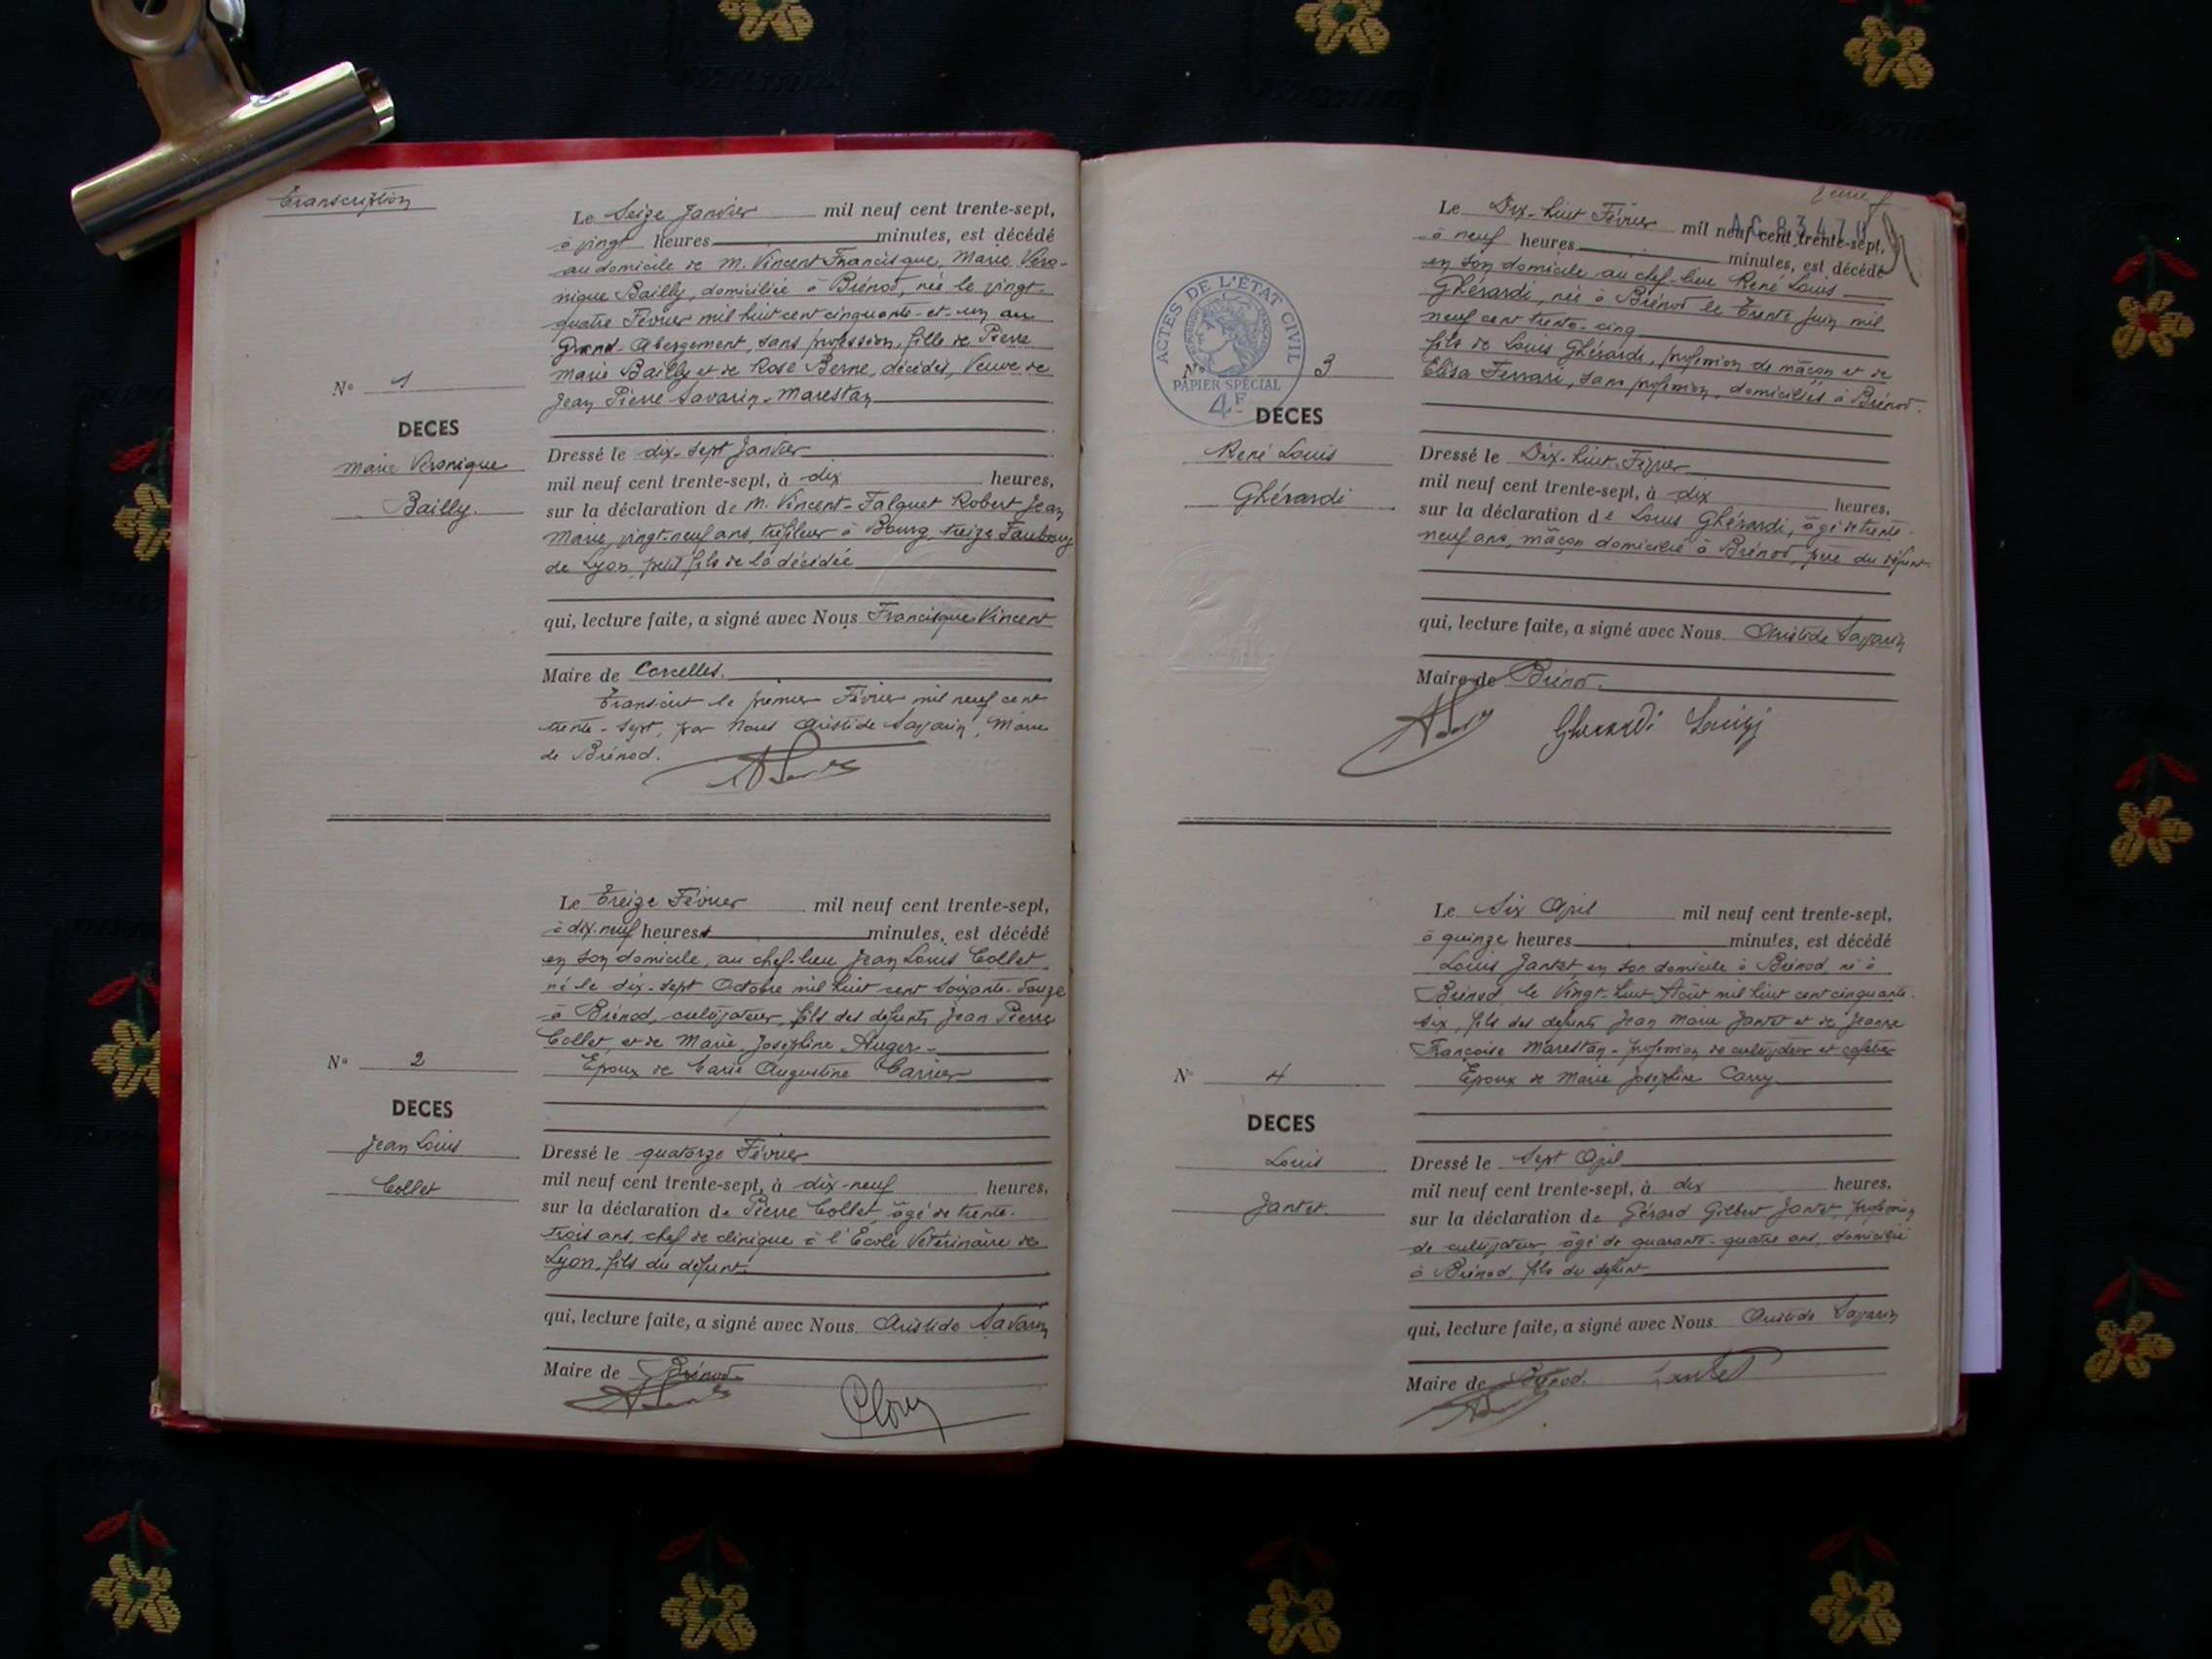 Transcription
Le Seize Janvier mil neuf cent trente-sept,
à vingt heures minutes, est décédé
au domicile de M. Vincent Francisque, Marie Véro-
nique Bailly, domiciliée à Brénod, née le vingt-
quatre Février mil huit cent cinquante-et-un au
Grand-Abergement, sans profession, fille de Pierre
Marie Bailly et de Rose Berne, décédés, Veuve de
Jean Pierre Savarin-Marestan
N° 1
DECES
Marie Véronique
Bailly
Dressé le dix-sept Janvier
mil neuf cent trente-sept, à dix heures,
sur la déclaration de M. Vincent-Falquet Robert Jean
Marie, vingt-neuf ans, tréfileur à Bourg, treize Faubourg
de Lyon, petit fils de la décédée
qui, lecture faite, a signé avec Nous Francisque Vincent
Maire de Corcelles.
Transcrit le premier Février mil neuf cent
trente-sept, par Nous Aristide Savarin, Maire
de Brénod.
Le Treize Février mil neuf cent trente-sept,
à dix-neuf heures minutes, est décédé
en son domicile, au chef-lieu Jean Louis Collet
né le dix-sept Octobre mil huit cent soixante-douze
à Brénod, cultivateur, fils des défunts Jean Pierre
Collet et de Marie Joséphine Auger-
Epoux de Marie Augustine Carrier
N° 2
DECES
Jean Louis
Collet
Dressé le quatorze Février
mil neuf cent trente-sept, à dix-neuf heures,
sur la déclaration de Pierre Collet, âgé de trente-
trois ans, chef de clinique à l'Ecole Vétérinaire de
Lyon, fils du défunt.
qui, lecture faite, a signé avec Nous Aristide Savarin
Maire de Brénod
2eme
AC 83470
Le Dix-huit Février mil neuf cent trente-sept,
à neuf heures minutes, est décédé
en son domicile au chef-lieu René Louis
Ghérardi, né à Brénod le Trente Juin mil
neuf cent trente-cinq
fils de Louis Ghérardi, profession de mâçon et de
Elisa Ferrari, sans profession, domiciliés à Brénod.
ACTES DE L'ÉTAT CIVIL
PAPIER SPÉCIAL
4F
N° 3
DECES
René Louis
Ghérardi
Dressé le Dix-huit-Février
mil neuf cent trente-sept, à dix heures,
sur la déclaration de Louis Ghérardi, âgé de trente-
neuf ans, mâçon domicilié à Brénod, père du défunt.
qui, lecture faite, a signé avec Nous Aristide Savarin
Maire de Brénod.
Gherardi Luigi
Le Six Avril mil neuf cent trente-sept,
à quinze heures minutes, est décédé
Louis Jantet en son domicile à Brénod, né à
Brénod, le Vingt-huit Août mil huit cent cinquante-
six, fils des défunts Jean Marie Jantet et de Jeanne
Françoise Marestan - profession de cultivateur et cafetier
Epoux de Marie Joséphine Carry
N° 4
DECES
Louis
Jantet.
Dressé le Sept Avril
mil neuf cent trente-sept, à dix heures,
sur la déclaration de Gérard Gilbert Jantet, profession
de cultivateur, âgé de quarante-quatre ans, domicilié
à Brénod, fils du défunt
qui, lecture faite, a signé avec Nous Aristide Savarin
Maire de Brénod.
Jantet